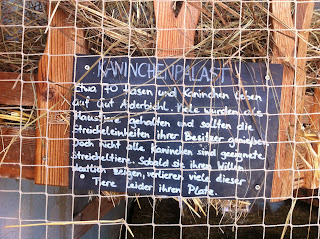 KANINCHENPALAST
Etwa 70 Hasen und Kaninchen leben
auf Gut Aiderbichl. Viele wurden als
Haustiere gehalten und sollten die
Streicheleinheiten ihrer Besitzer genießen.
Doch nicht alle Kaninchen sind geeignete
Streicheltiere. Sobald sie ihren Willen
deutlich zeigen, verlieren viele dieser
Tiere leider ihren Platz.